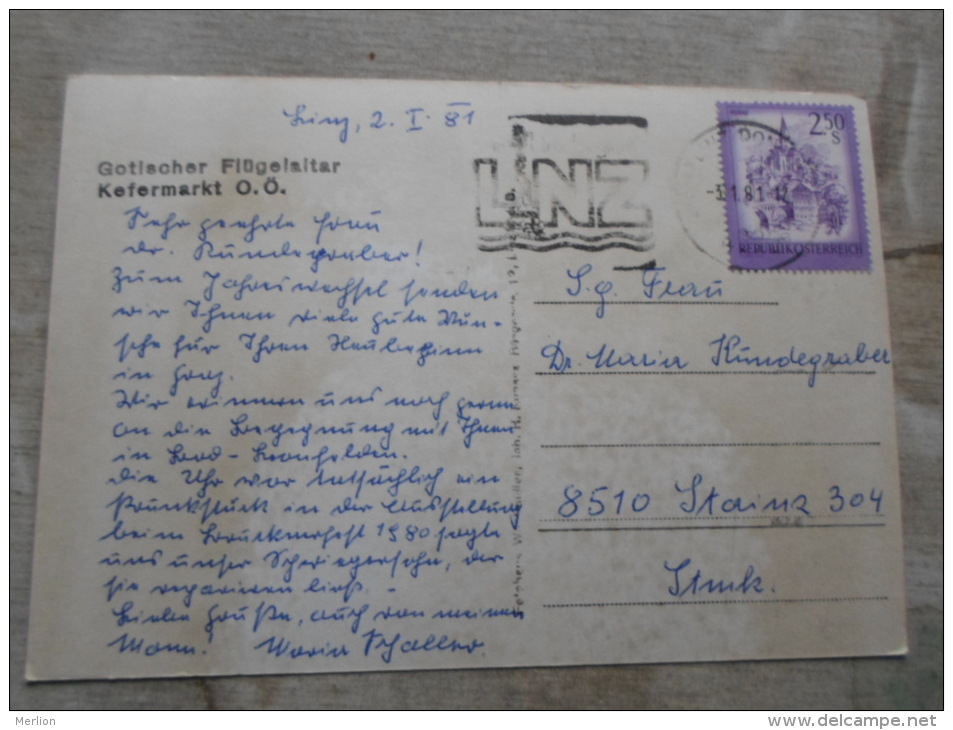 Linz, 2. I. 81
Gotischer Flügelaltar
Kefermarkt O.Ö.
Sehr geehrte Frau
Dr. Kundegraber!
Zum Jahreswechsel senden
wir Ihnen viele gute Wün-
sche für Ihren
in
Wir erinnern uns noch gerne
an die Begegnung mit Ihnen
in Bad-Leonfelden.
Die Uhr war tatsächlich ein
Prunkstück in der Ausstellung
beim Brucknerfest 1980 sagte
uns unser Schwiegersohn, der
sie reparieren ließ. -
Liebe Grüße, auch von meinem
Mann! Maria Schaller
LINZ
-3.1.81-12
2.50
S
REPUBLIK ÖSTERREICH
S.g. Frau
Dr. Maria Kundegraber
8510 Stainz 304
Stmk.
Merlion
www.delcampe.net